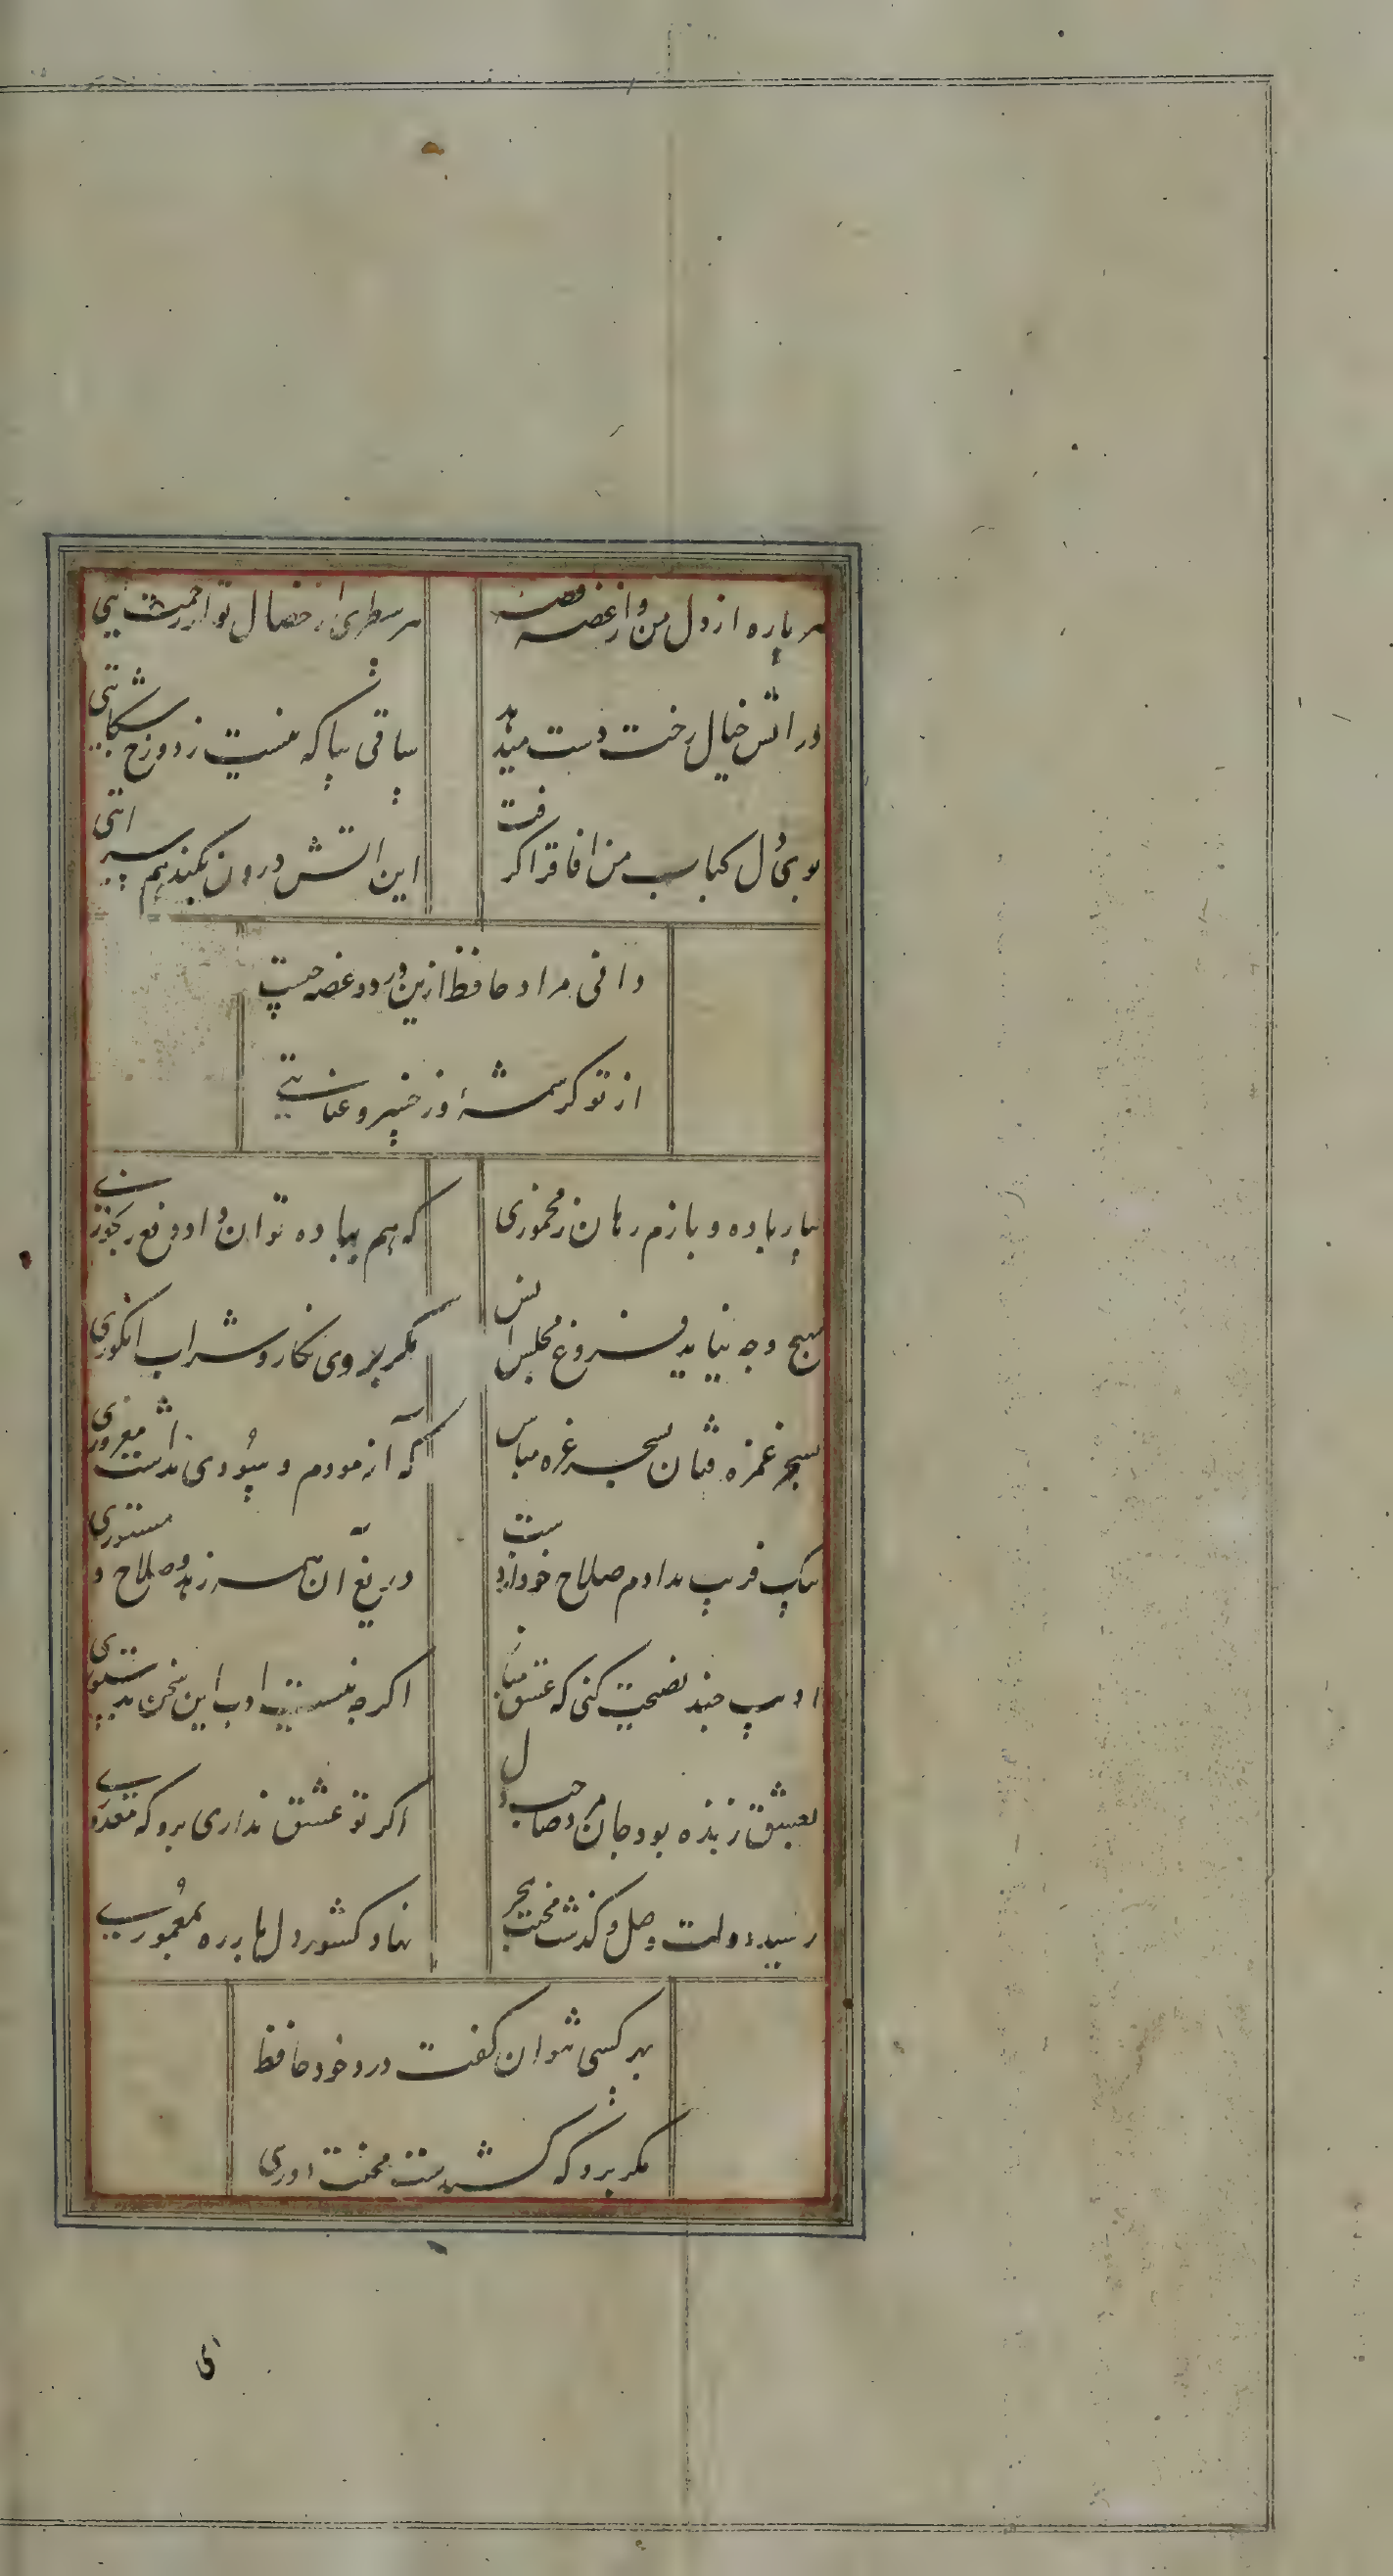 هر پاره از دل من و از غصه قصه
هر سطری از خصال تو از رحمت آیتی
در اتش خیال رخت دست میدهد
ساقی بیا که نیست ز دوزخ شکایتی
بوی دل کباب من افاق را گرفت
این اتش درون بکند هم سرایتی
دانی مراد حافظ ازین درد و غصه چیست
از تو کرشمهٔ و ز خسرو عنایتی
بیار باده و بازم رهان ز مخموری
که هم بباده توان داد دفع رنجوری
بهیچ وجه نیاید فروغ مجلس انس
مگر بروی نگار و شراب انگوری
بسحر غمزه فتان بسحر غره مباش
که آزمودم و سودی نداشت مغروری
بیک فریب بدادم صلاح خود از دست
دریغ آن همه زهد و صلاح و مستوری
ادیب چند نصیحت کنی که عشق مباز
اگرچه نیست ادب این سخن بدستوری
بعشق زنده بود جان مرد صاحب دل
اگر تو عشق نداری برو که معذوری
رسید دولت وصل و گذشت محنت هجر
نهاد کشور دل باز ره بمعموری
بهر کسی نتوان گفت درد خود حافظ
مگر برو که کشیدست محنت دوری
ای